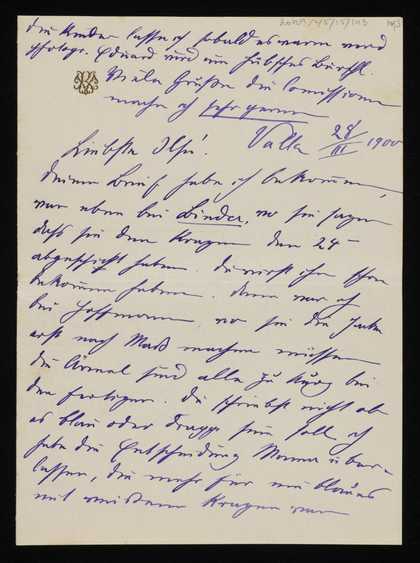 die Kinder lasse ich sobald es warm wird
photogr. Eduard wird ein hübsches Bürschl.
Viele Grüße die Comissionen
mache ich sehr gerne
Valla 28/III 1900
Liebste Ilse!
Deinen Brief habe ich bekommen,
war eben bei Binder, wo sie sagen
daß sie den Kragen den 24
abgeschickt haben. Du wirst ihn schon
bekommen haben. Dann war ich
bei Hoffmann wo sie die Jacke
erst nach Maß machen müssen
die Ärmel sind alle zu kurz bei
den fertigen. Du schreibst nicht ob
es blau oder Drapp sein soll, ich
habe die Entscheidung Mama über-
lassen, die mehr für ein blaues
mit weißem Kragen war